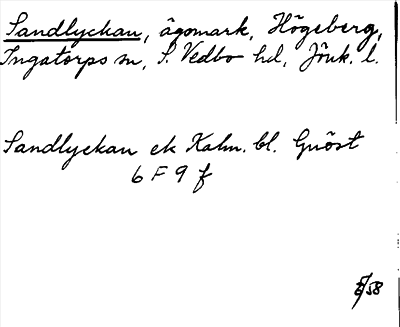 Sandlyckan, ägomark, Högeberg,
Ingatorps sn, S. Vedbo hd, Jönk. l.
Sandlyckan ek Kalm. bl. Gnöst
6 F 9 f
58